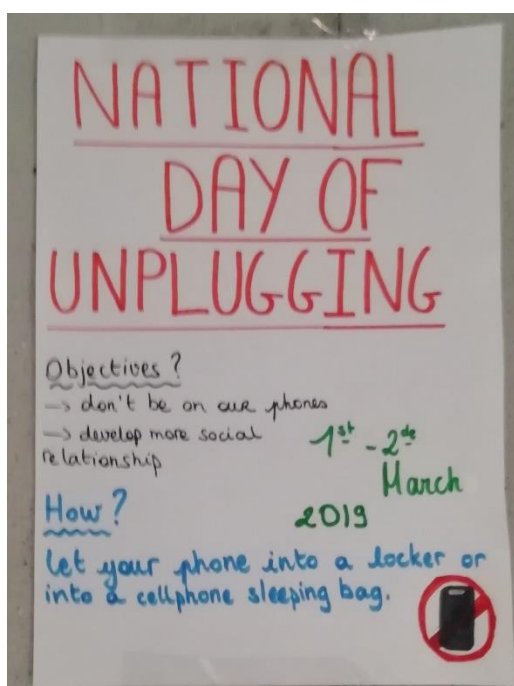 NATIONAL
DAY OF
UNPLUGGING
Objectives ?
-> don't be on our phones
-> develop more social
relationship
1st - 2de
March
2019
How ?
Let your phone into a locker or
into a cellphone sleeping bag.